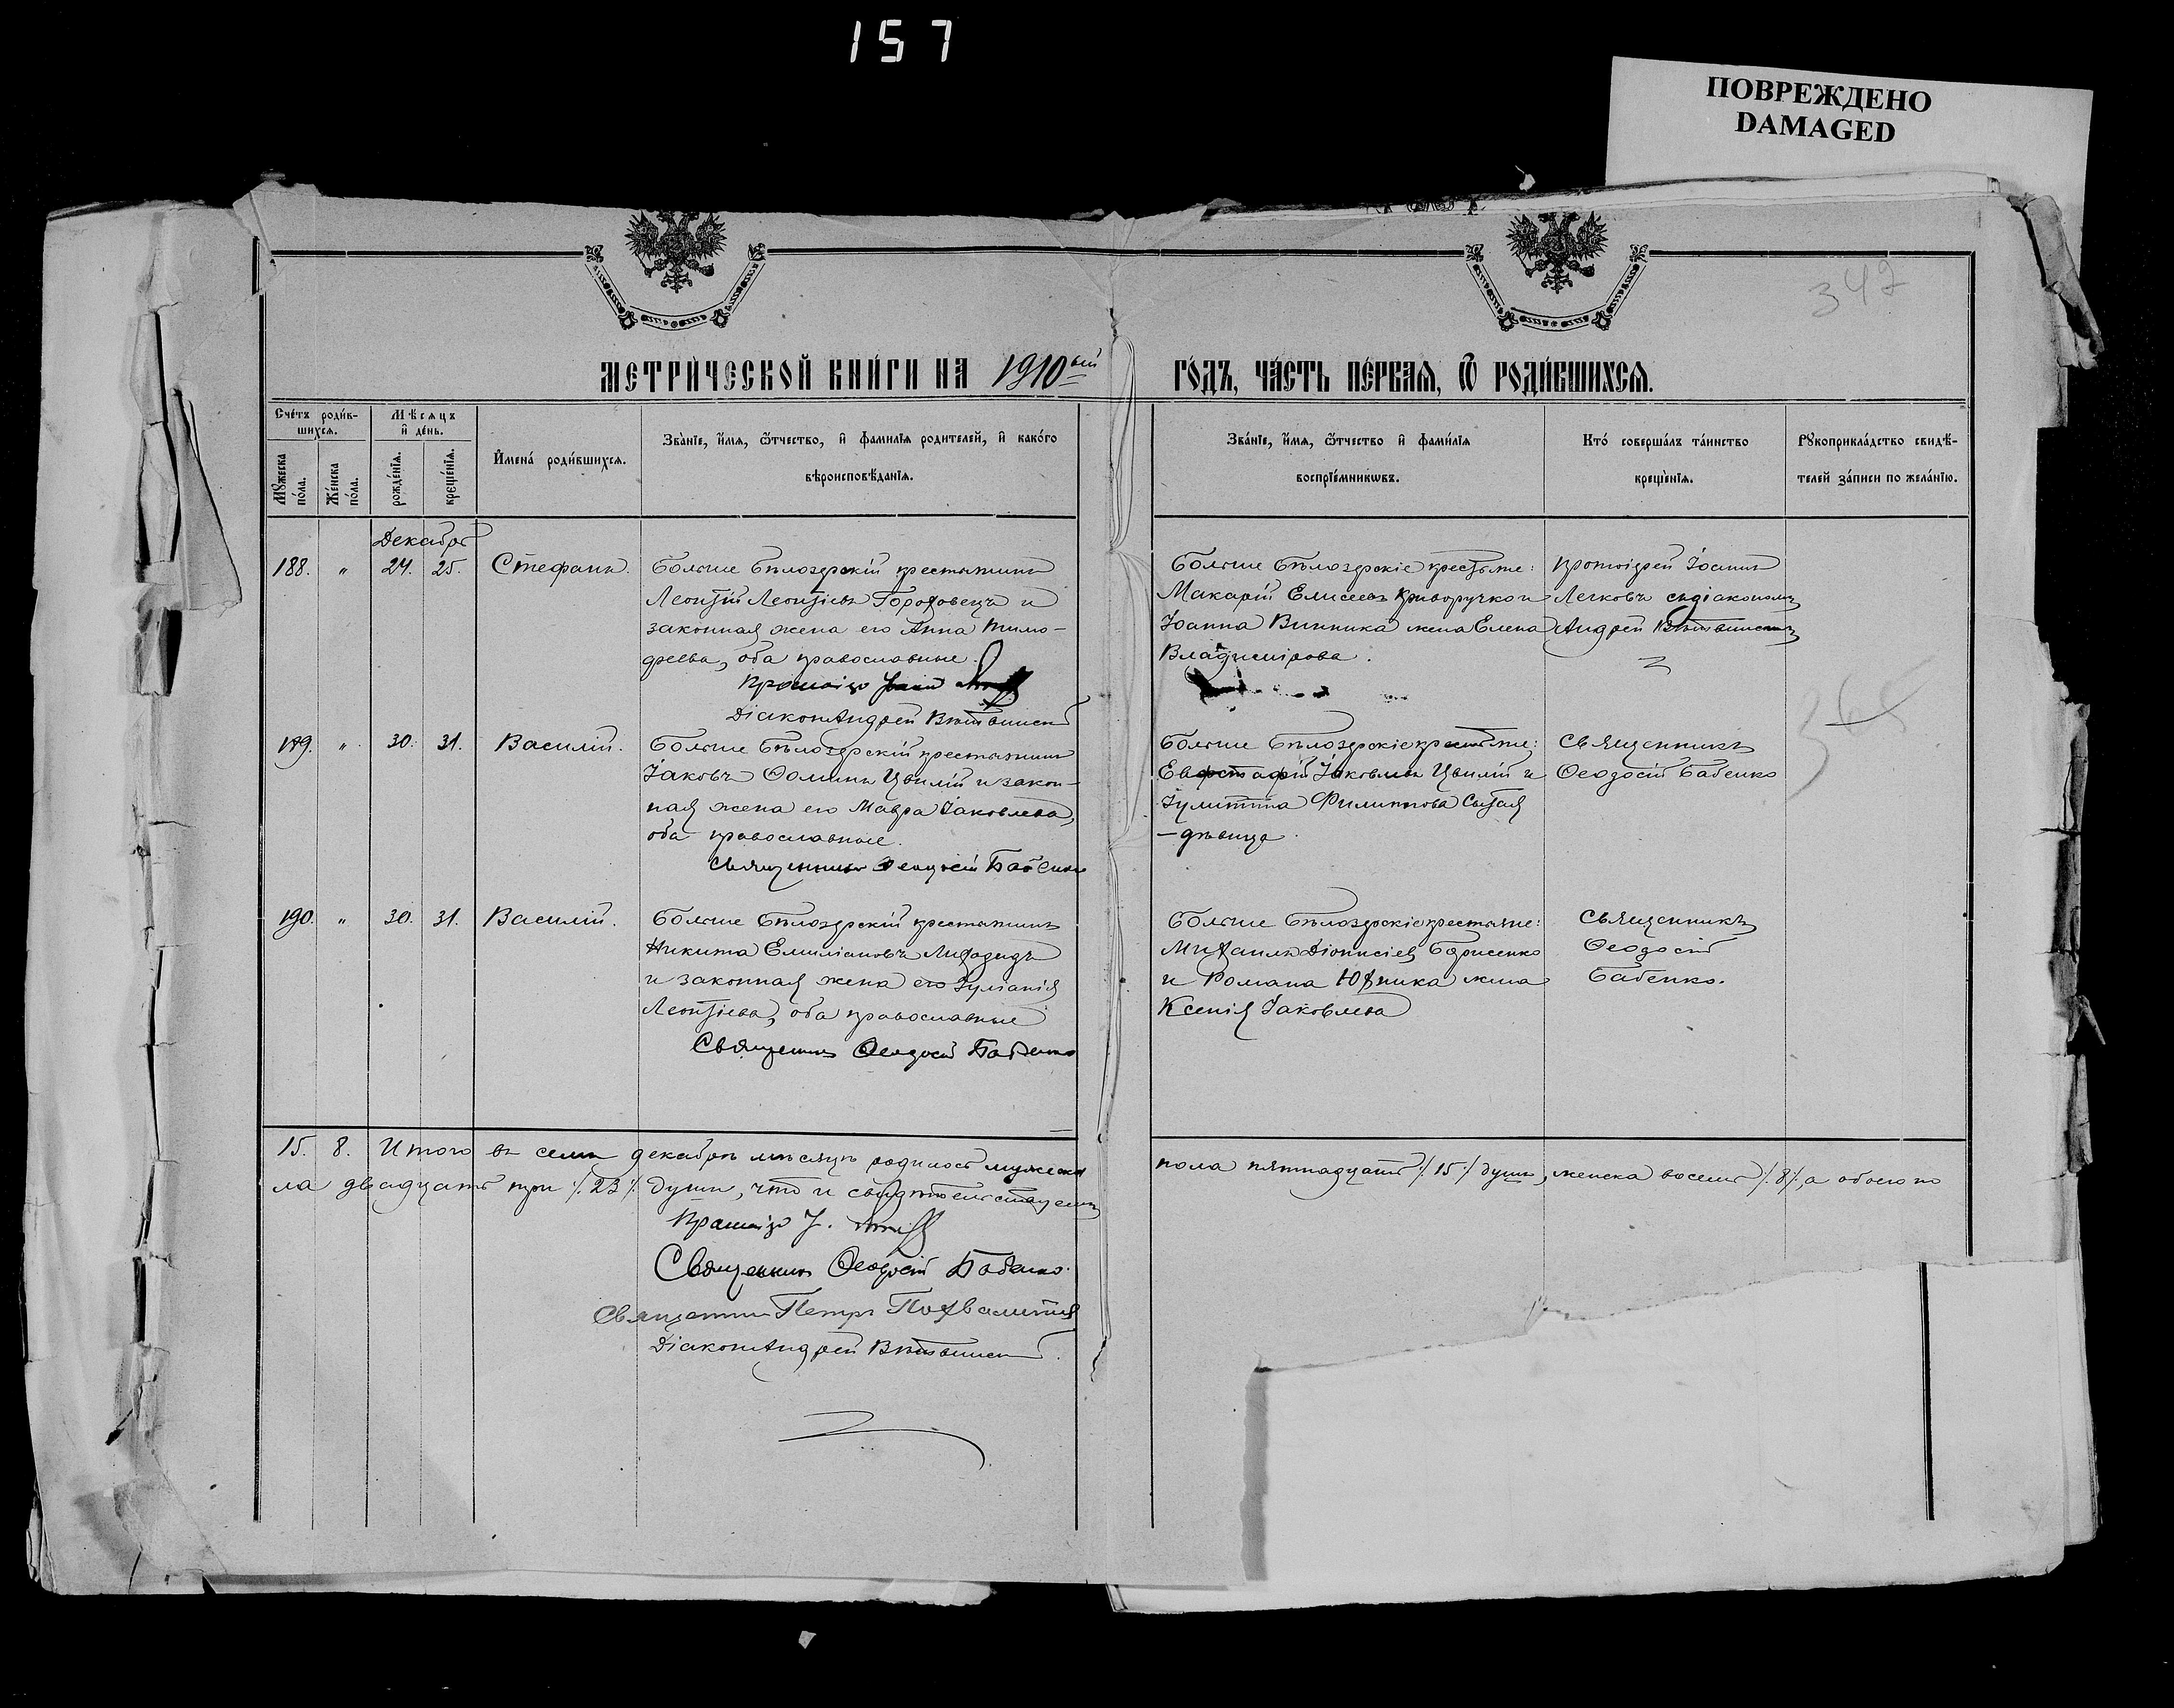 157
ПОВРЕЖДЕНО
DAMAGED
342
МЕТРИ́ЧЕСКОЙ КНИ́ГИ НА 1910ый ГО́ДЪ, ЧА́СТЬ ПЕ́РВАЯ, Ѿ РОДИ́ВШИХСЯ.
Сче́тъ роди́в-
шихся.
Мꙋ́жеска по́ла.
Же́нска по́ла.
Мѣ́сяцъ
и҆ де́нь.
рожде́нїя.
креще́нїя.
И҆мена́ роди́вшихся.
Зва́нїе, и҆́мя, ѻ҆́тчество, и҆ фами́лїя роди́телей, и҆ како́го
вѣроисповѣ́данїя.
Зва́нїе, и҆́мя, ѻ҆́тчество и҆ фами́лїя
воспрїе́мникѡвъ.
Кто́ соверша́лъ та́инство
креще́нїя.
Рꙋкоприкла́дство свидѣ́-
телей за́писи по жела́нїю.
Декабрь
188. " 24. 25. Стефанъ.
Больше Бѣлозерскій крестьянинъ
Леонтій Леонтіевъ Гороховецъ и
законная жена его Анна Тимо-
феева, оба православные.
Діаконъ Андрей Вѣтвинскій
Больше Бѣлозерскіе крестьяне:
Макарій Елисеевъ Криворучко и
Іоанна Винника жена Елена
Владимірова.
Протоіерей Іоаннъ
Легковъ съ діакономъ
Андрей Вѣтвинскимъ
189. " 30. 31. Василій.
Больше Бѣлозерскій крестьянинъ
Іаковъ Ѳоминъ Цвилій и закон-
ная жена его Мавра Іаковлева,
оба православные.
Священникъ Ѳеодосій Бабенко
Больше Бѣлозерскіе крестьяне:
Евстафій Іаковлевъ Цвилій и
Іулитта Филиппова Сытая
– дѣвица.
Священникъ
Ѳеодосій Бабенко
190. " 30. 31. Василій.
Больше Бѣлозерскій крестьянинъ
Никита Емиліановъ Лиходидъ
и законная жена его Іуліанія
Леонтіева, оба православные
Священникъ Ѳеодосій Бабенко
Больше Бѣлозерскіе крестьяне:
Михаилъ Діонисіевъ Борисенко
и Романа Юхника жена
Ксенія Іаковлева
Священникъ
Ѳеодосій
Бабенко.
15. 8. Итого въ семъ декабрѣ мѣсяцѣ родилось мужеска пола пятнадцать /.15./ душъ, женска восемь /.8./, а обоего по
ла двадцать три /.23./ души, что и свидѣтельствуемъ
Священникъ Ѳеодосій Бабенко.
Священникъ Петръ Похвалитій
Діаконъ Андрей Вѣтвинскій.